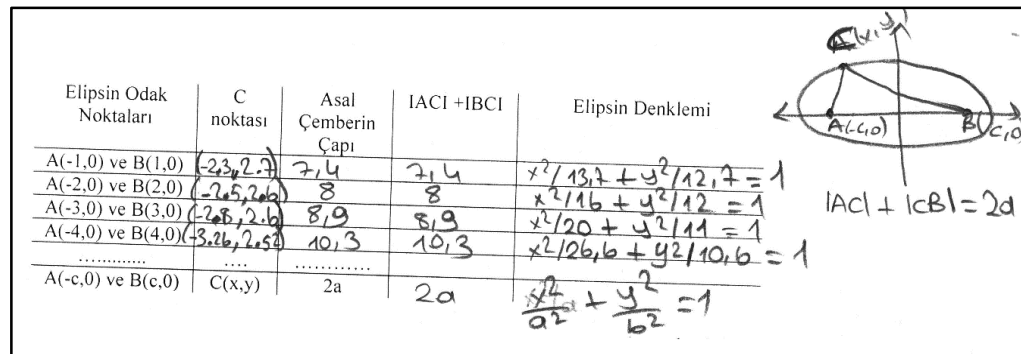 C(x,y)
Elipsin Odak Noktaları C noktası Asal Çemberin Çapı IACI +IBCI Elipsin Denklemi
A(-c,0) B(c,0)
A(-1,0) ve B(1,0) (-2,3, 2.7) 7,4 7,4 x²/13,7 + y²/12,7 = 1
A(-2,0) ve B(2,0) (-2.5, 2.6) 8 8 x²/16 + y²/12 = 1
A(-3,0) ve B(3,0) (-2.8, 2.6) 8,9 8,9 x²/20 + y²/11 = 1
|AC| + |CB| = 2a
A(-4,0) ve B(4,0) (-3.26, 2.52) 10,3 10,3 x²/26,6 + y²/10,6 = 1
............. .... ............
A(-c,0) ve B(c,0) C(x,y) 2a 2a x²/a² + y²/b² = 1